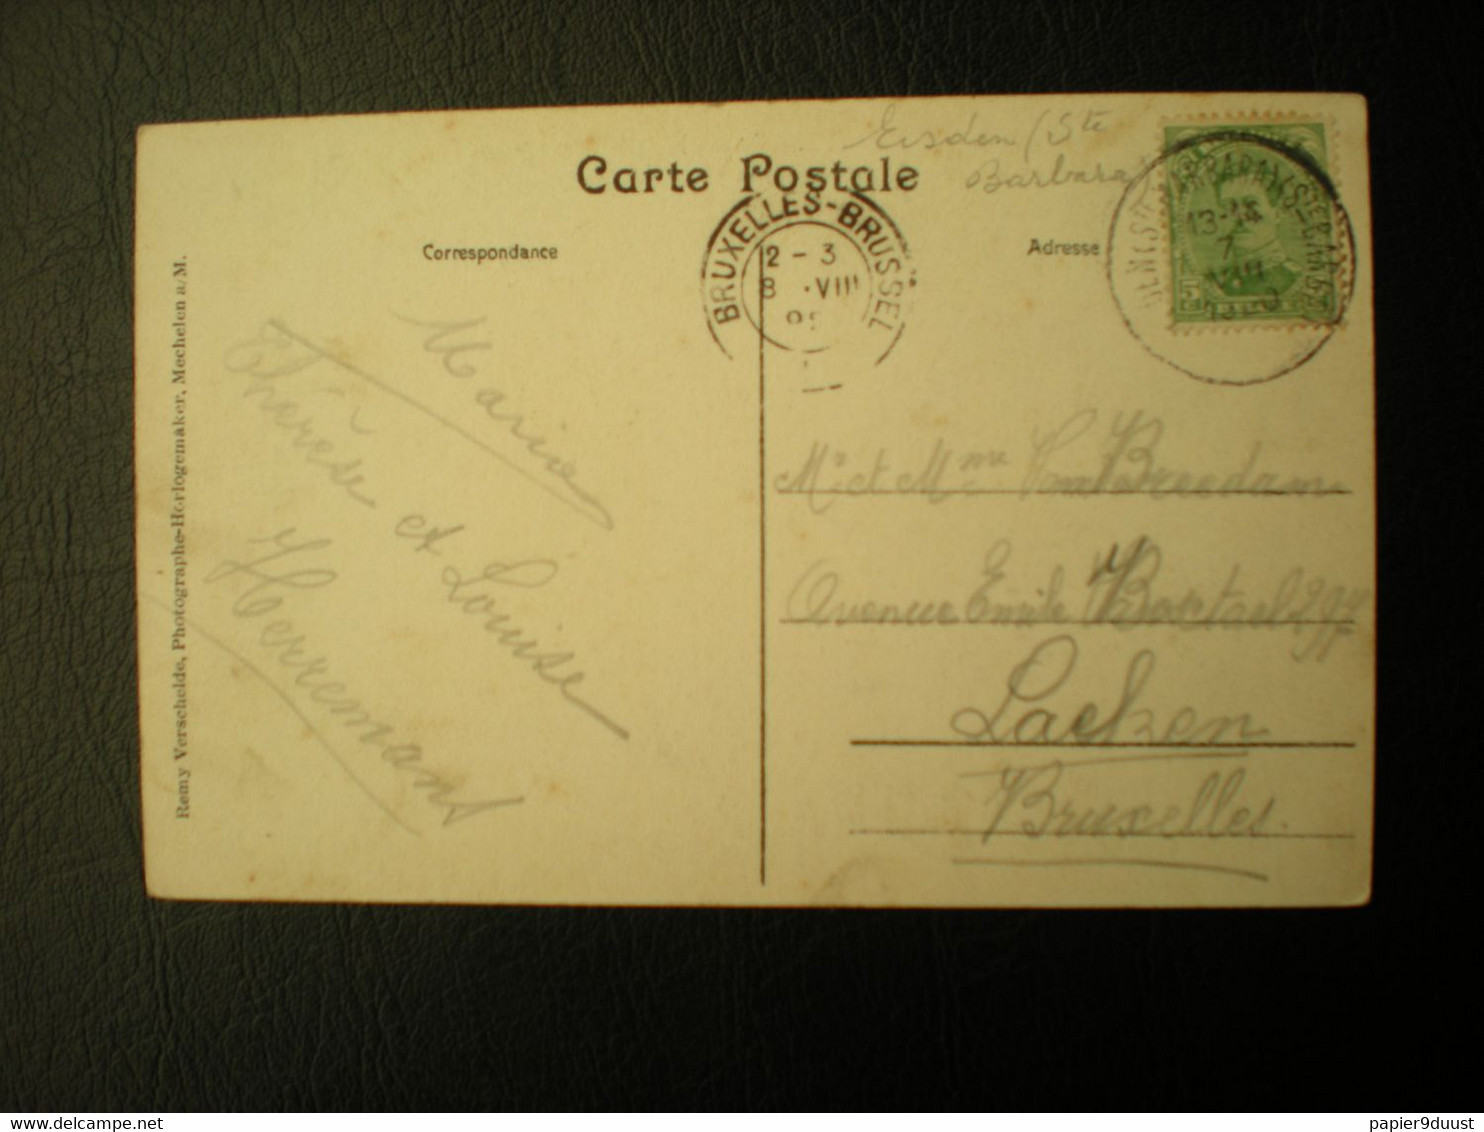 Eisden (Ste
Barbara)
Carte Postale
Correspondance
Adresse
BRUXELLES-BRUSSEL
2 - 3
8 VIII
13-14
7
VIII
1920
Marie
Thérèse et Louise
Herremans
Mr et Mme Van Breedam
Avenue Emile Bockstael
Laeken
Bruxelles.
Remy Verschelde, Photographe-Horlogemaker, Mechelen a/M.
delcampe.net
papier9duust